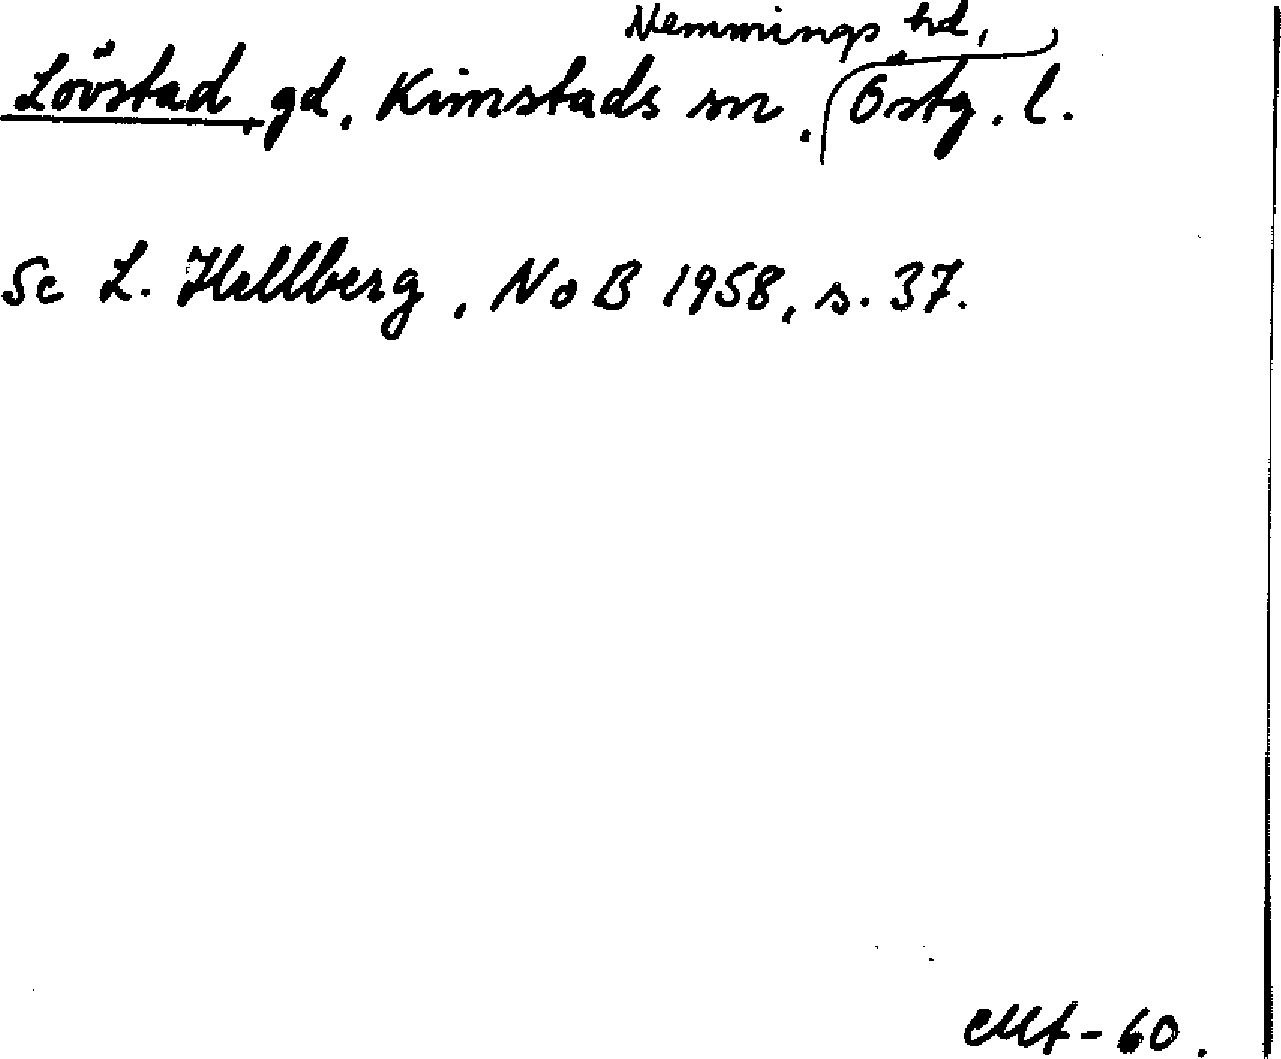 Lövstad, gd, Kimstads sn, Memmings hd, Östg. l.
Se L. Hellberg, NoB 1958, s. 37.
Mf-60.